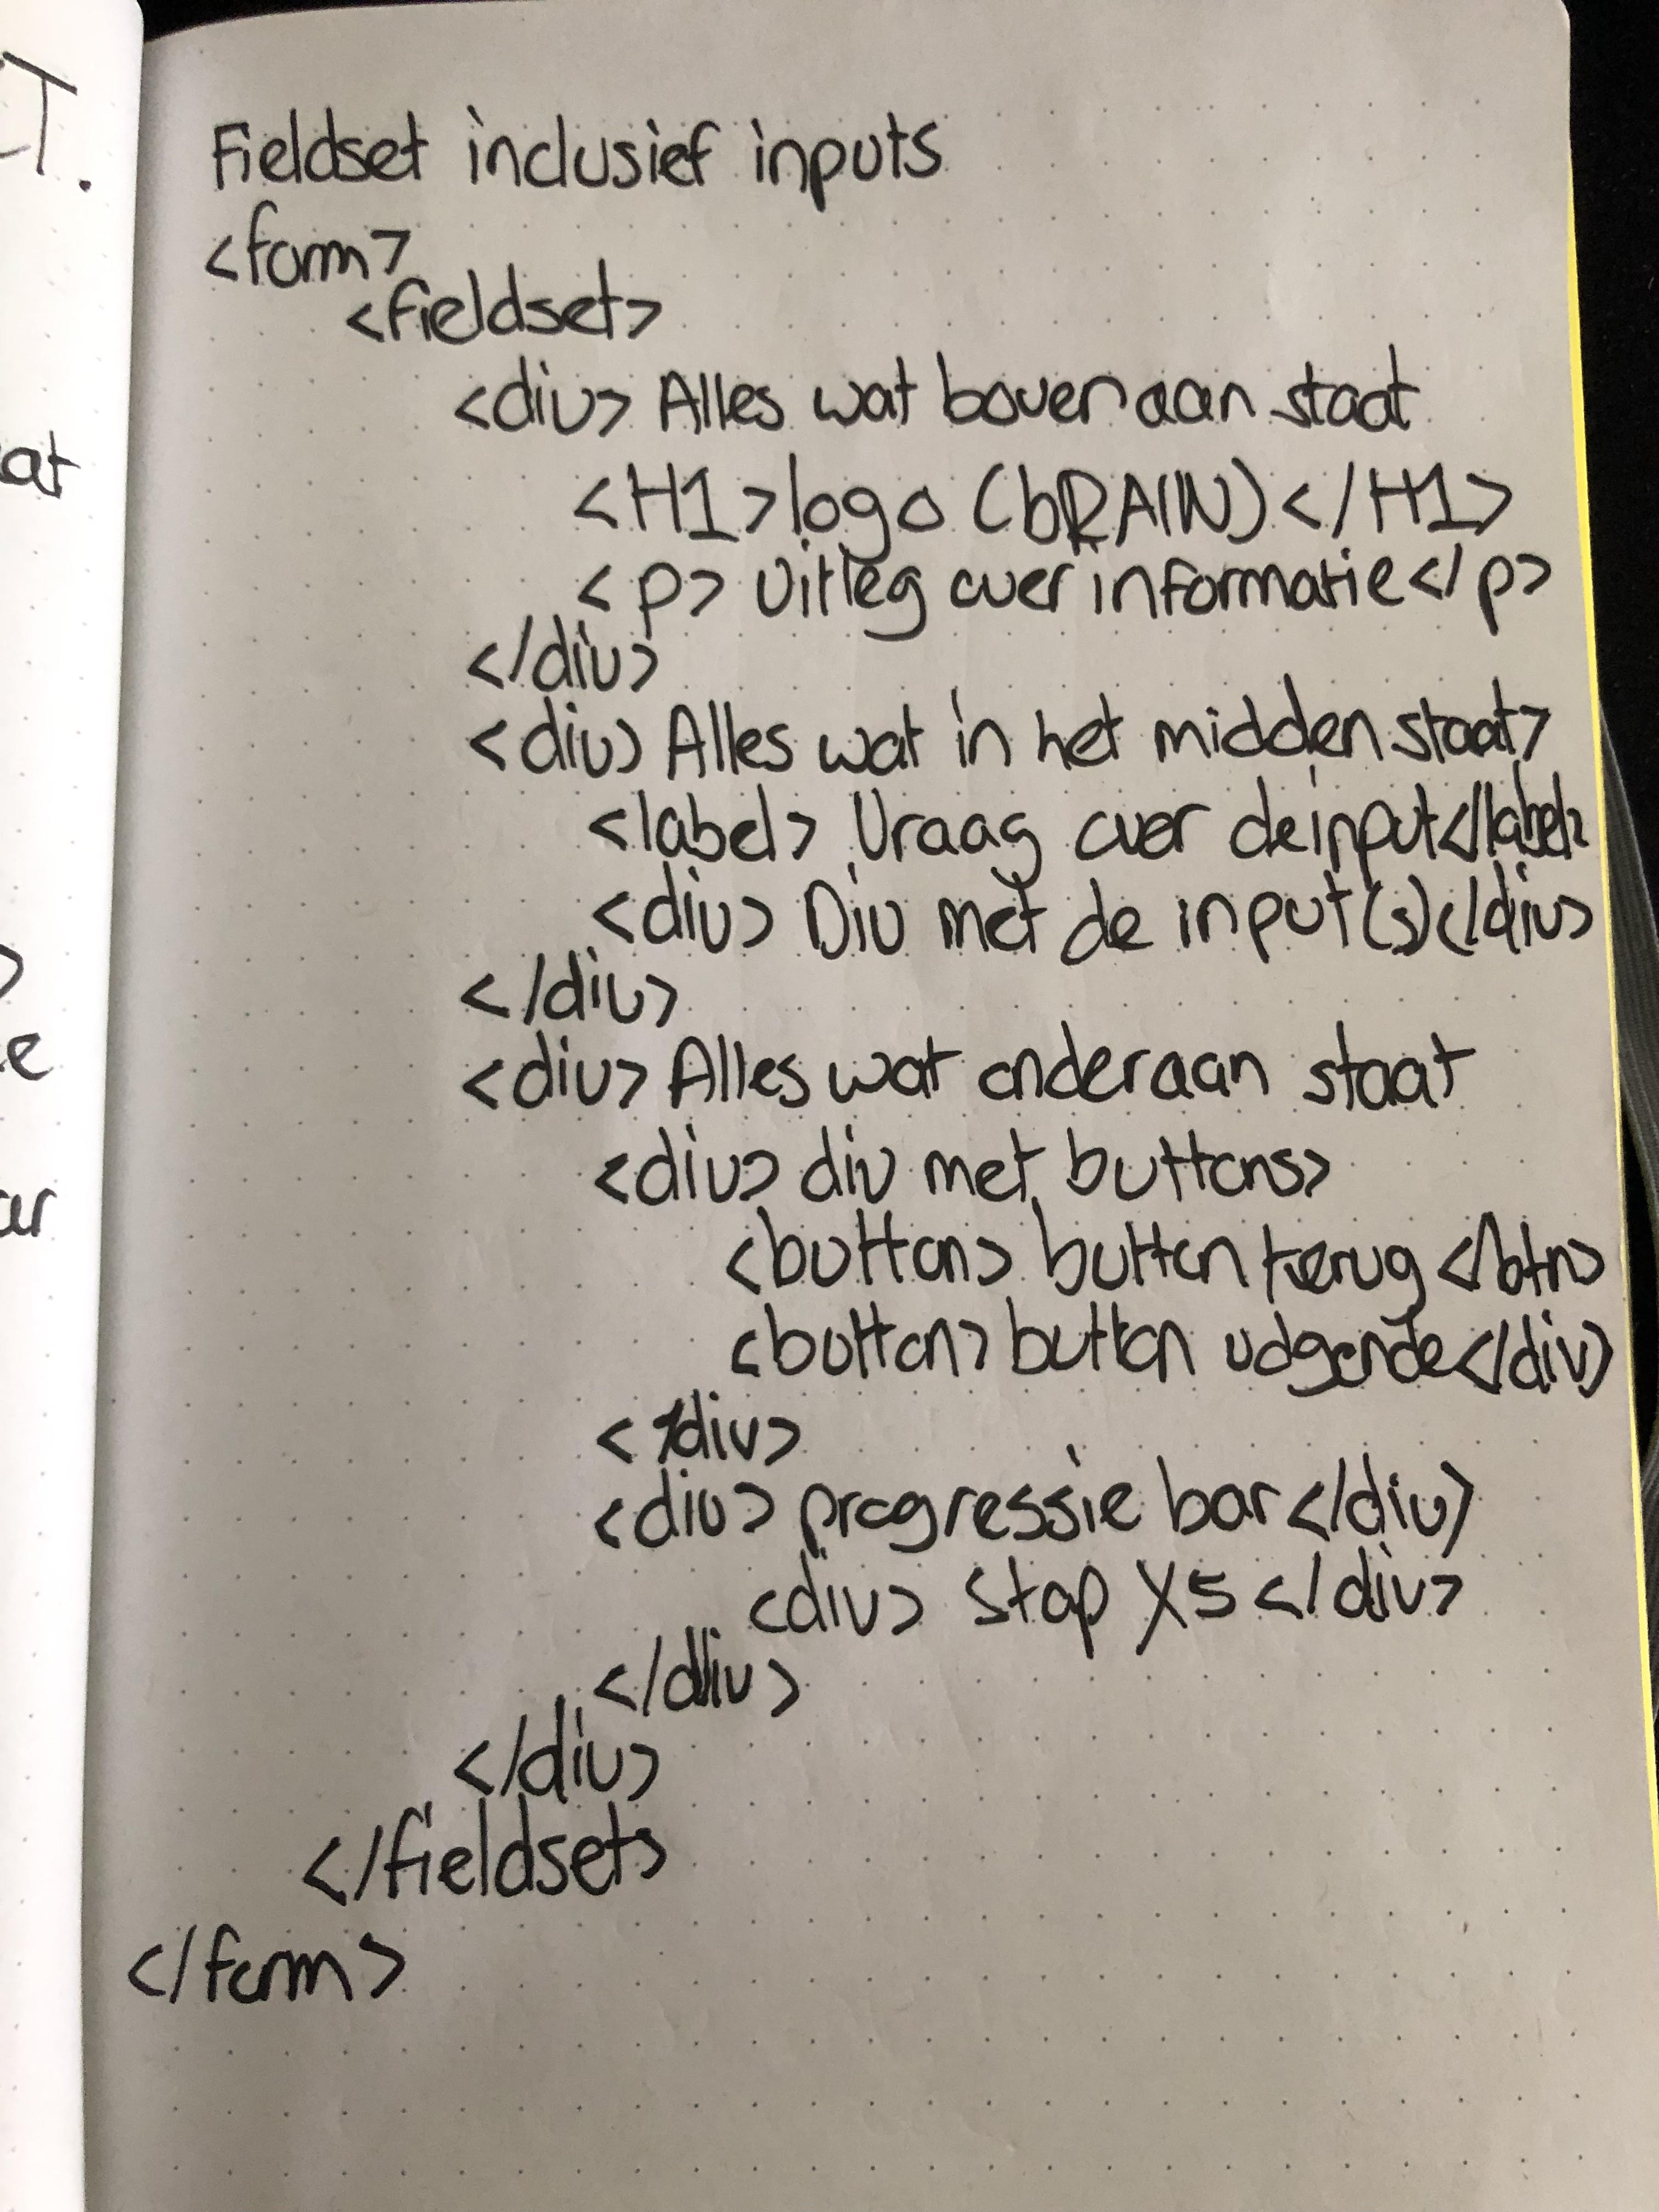 T.
at
e
ar
Fieldset inclusief inputs
<form>
<fieldset>
<div> Alles wat bovenaan staat
<H1> logo (bRAIN) </H1>
<p> Uitleg over informatie </p>
</div>
<div> Alles wat in het midden staat>
<label> Vraag over de input </label>
<div> Div met de input(s) </div>
</div>
<div> Alles wat onderaan staat
<div> div met buttons>
<button> button terug </btn>
<button> button volgende </div>
</div>
<div> progressie bar </div>
<div> stap X5 </div>
</div>
</div>
</fieldset>
</form>